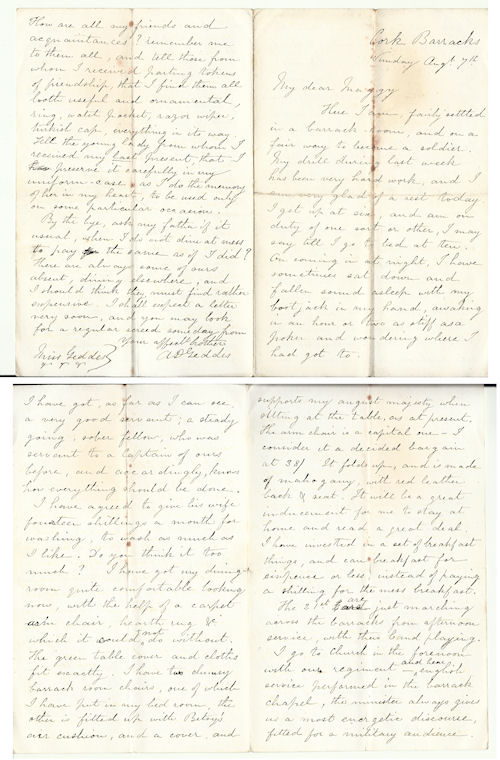 Cork Barracks
Sunday Augt 7th
My dear Maggy
Here I am, fairly settled
in a barrack room, and on a
fair way to become a soldier.
My drill during last week
has been very hard work, and I
am very glad of a rest today.
I get up at six, and am on
duty of one sort or other, I may
say till I go to bed at ten.
On coming in at night, I have
sometimes sat down and
fallen sound asleep with my
boot jack in my hand, awaking
in an hour or two as stiff as a
poker and wondering where I
had got to.
I have got, as far as I can see,
a very good servant; a steady
going, sober fellow, who was
servant to a Captain of ours
before, and accordingly, knows
how everything should be done.
I have agreed to give his wife
fourteen shillings a month for
washing, to wash as much as
I like. Do you think it too
much? I have got my dining
room quite comfortable looking
now, with the help of a carpet
arm chair, hearth rug &
which it could not do without.
The green table cover and cloths
fit exactly. I have two clumsy
barrack room chairs, one of which
I have put in my bed room, the
other is fitted up with Betsy's
air cushion, and a cover, and
supports my august majesty when
sitting at the table, as at present.
The arm chair is a capital one — I
consider it a decided bargain
at 38/ It folds up, and is made
of mahogany, with red leather
back & seat. It will be a great
inducement for me to stay at
home and read a great deal.
I have invested in a set of breakfast
things, and can breakfast for
sixpence or less, instead of paying
a shilling for the mess breakfast.
The 21st are just marching
across the barracks from afternoon
service, with their band playing.
I go to Church in the forenoon
with our regiment — and hear english
service performed in the barrack
chapel, the minister always gives
us a most energetic discourse,
fitted for a military audience.
How are all my friends and
acquaintances? remember me
to them all, and tell those from
whom I received parting tokens
of friendship, that I find them all
both useful and ornamental,
ring, watch pocket, razor wiper,
turkish cap, everything in its way.
Tell the young lady from whom I
received my last present, that I
preserve it carefully in my
uniform-case as I do the memory
of her in my heart, to be used only
on some particular occasions.
By the bye, ask my father if it
usual, when I do not dine at mess
to pay the same as if I did?
There are always some of ours
absent, dining elsewhere, and
I should think they must find rather
expensive. I shall expect a letter
very soon, and you may look
for a regular screed some day from
Your affect brother
A D Geddes
Miss Geddes